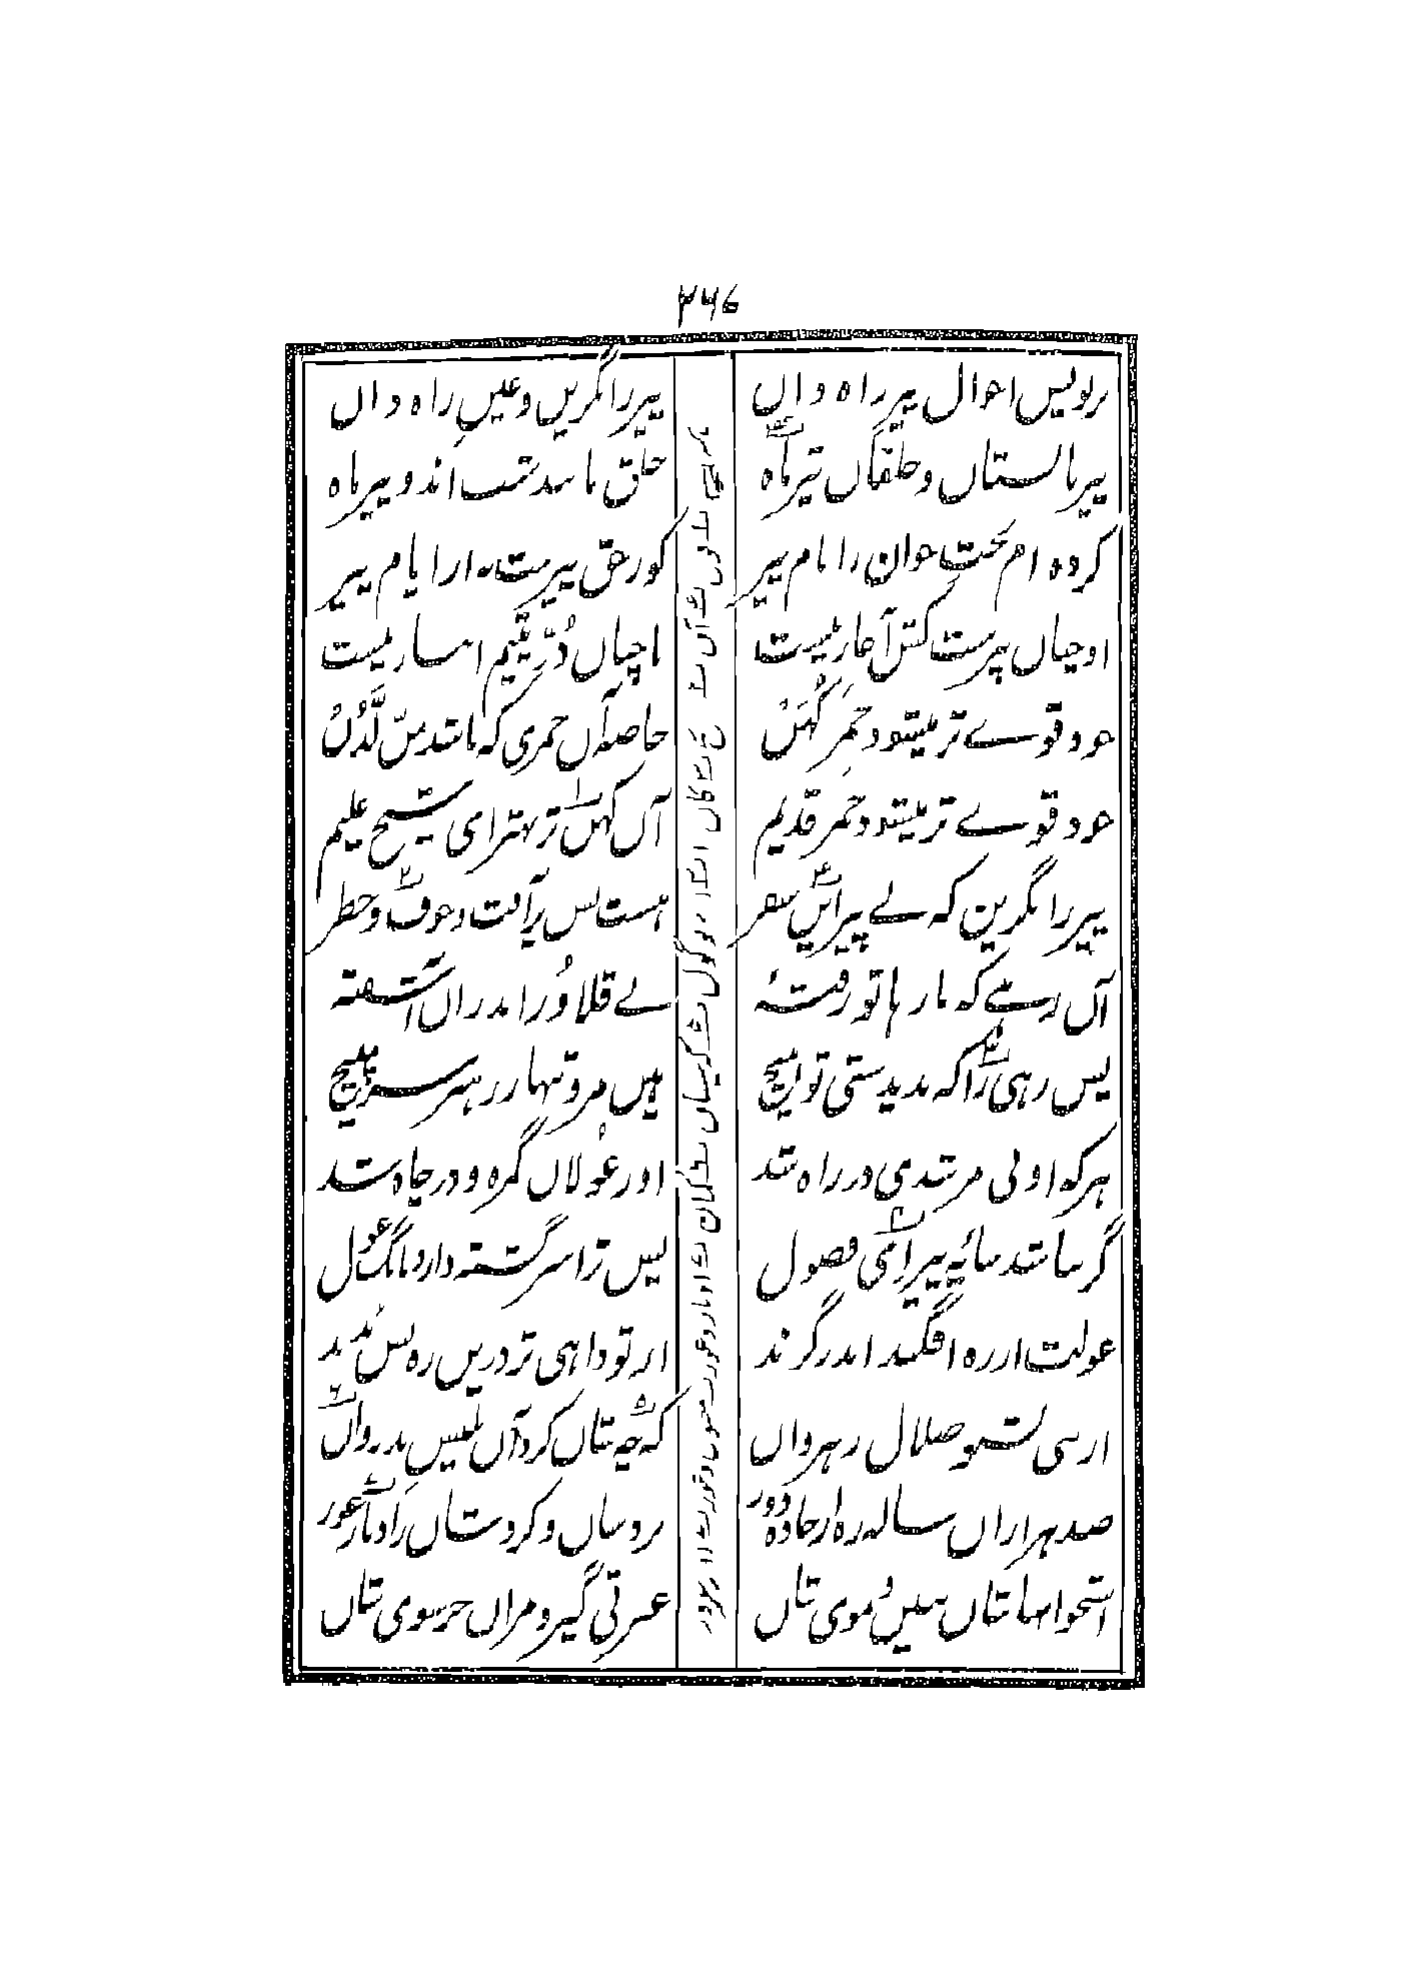 برنویس احوال پیر راه دان پیر را بگزین و عین راه دان
پیر تابستان و خلقان تیر ماه خلق مانند شب اند و پیر ماه
کرده ام بخت جوان را نام پیر کو ز حق پیرست نه از ایام پیر
او چنان پیرست کش آغاز نیست با چنان دُرّ یتیم انباز نیست
خود قوے تر میشود خمر کُهَنْ خاصه آن خمری که باشد مِنْ لَّدُنْ
خود قوے تر میشود خمر قدیم آن کهن تر بهتر ای شیخ علیم
پیر را بگزین که بے پیر این سفر هست بس پر آفت و خوف و خطر
آن رهے که بارها تو رفتهٔ بے قلاوُز اندران آشفتهٔ
پس رهی را که ندیدستی تو هیچ هین مرو تنها ز رهبر سر مپیچ
هر که او بی مرشدی در راه شد او ز غولان گمره و در چاه شد
گر نباشد سایه پیر ای فضول پس ترا سرگشته دارد بانگ غول
غولت از ره افگند اندر گزند از تو داهی تر درین ره بس بُدند
از نبی بشنو ضلال رهروان که چه شان کرد آن بلیس بد روان
صد هزاران ساله ره از جاده دور بردشان و کردشان ز ادبار عور
استخوانهاشان ببین و موی شان عبرتی گیر و مران خر سوی شان